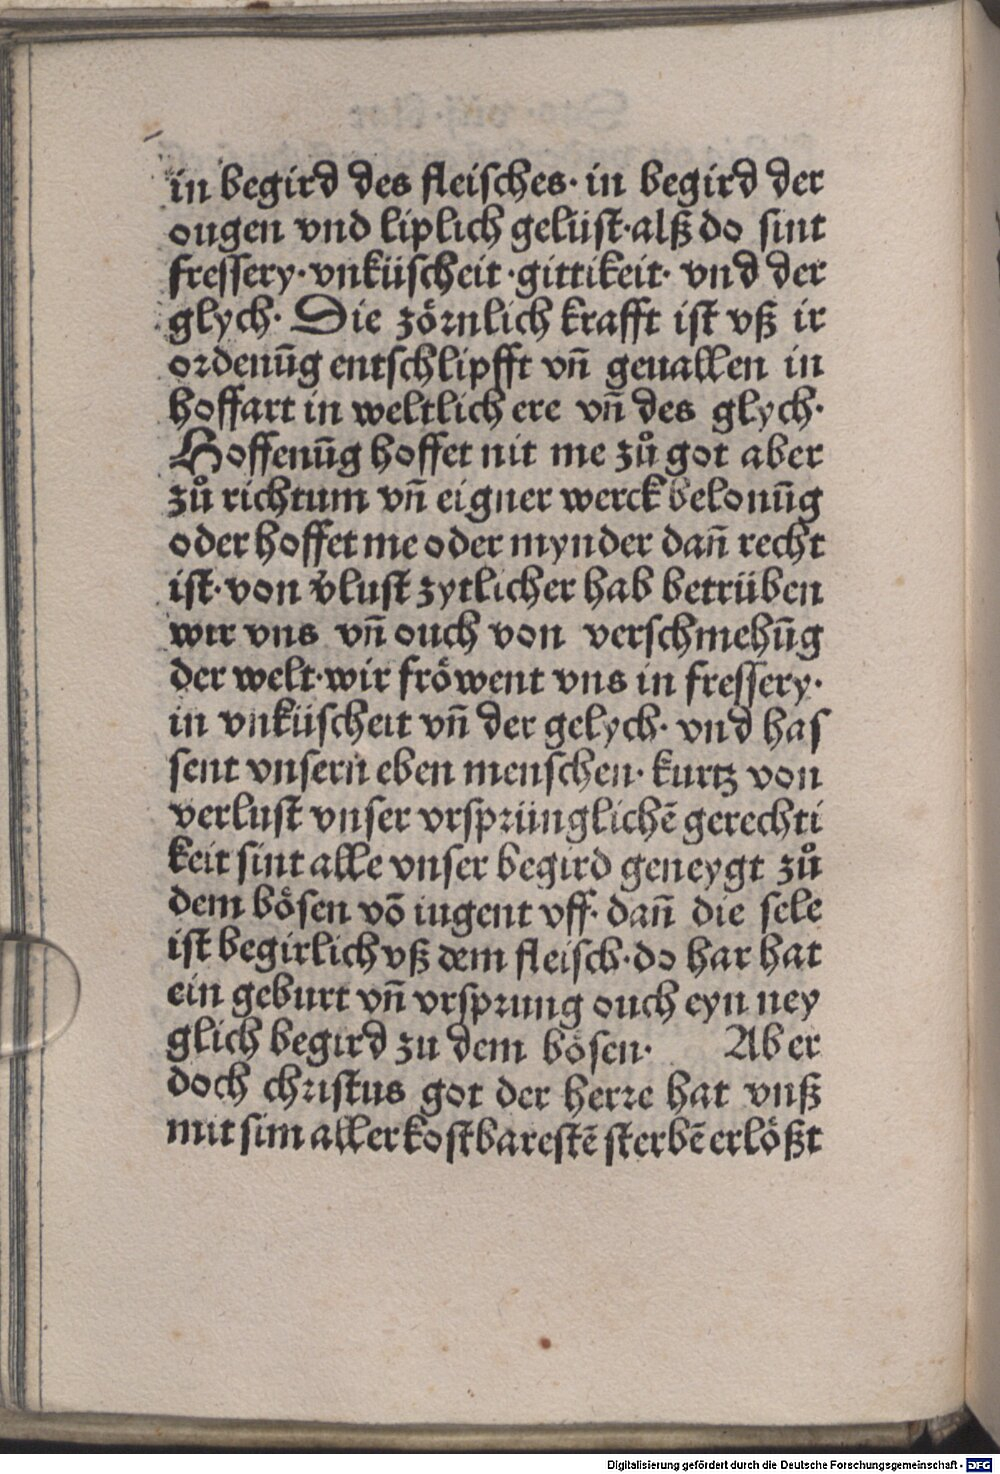 in begird des fleisches· in begird der
ougen vnd liplich gelüst·alß do sint
fressery·vnküscheit·gittikeit· vnd der
glych· Die zörnlich krafft ist vß ir
ordenūg entschlipfft vñ geuallen in
hoffart in weltlich ere vñ des glych·
Hoffenūg hoffet nit me zů got aber
zů richtum vñ eigner werck belonūg
oder hoffet me oder mynder dañ recht
ist·von v̄lust zytlicher hab betrüben
wir vns vñ ouch von verschmehūg
der welt·wir fröwent vns in fressery·
in vnküscheit vñ der gelych· vnd has
sent vnsern eben menschen· kurtz von
verlust vnser vrsprünglichē gerechti
keit sint alle vnser begird geneygt zů
dem bösen vō iugent vff· dañ die sele
ist begirlich vß dem fleisch·do har hat
ein geburt vñ vrsprung ouch eyn ney
glich begird zu dem bösen· Aber
doch christus got der herre hat vnß
mit sim aller kostbarestē sterbē erlößt
Digitalisierung gefördert durch die Deutsche Forschungsgemeinschaft - DFG